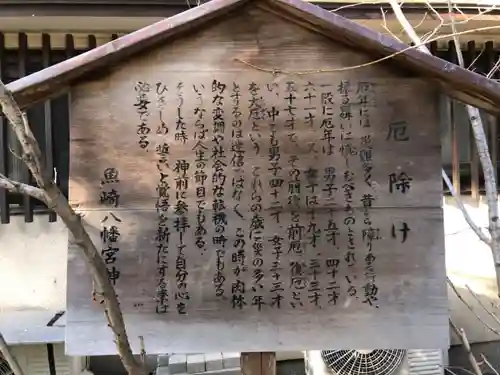 厄除け
厄年には、災難多く、昔ら障りある行動や、
振る舞いに慎しむべきものとされている。
一般に厄年は、男子二十五才、四十二才
六十一才、又、女子は十九才、三十三才、
三十七才で、その前後を前厄、後厄とい
い、中でも男子四十二才、女子三十三才
を大厄という。これらの歳に災の多い年
とするのは迷信ではなく、この時が肉体
的な変調や社会的な転機の時でもある、
いうならば人生の節目でもある。
そうした時、神前に参拝して自分の心を
ひきしめ、覚悟を新たにする事は
必要である。
魚崎八幡宮神